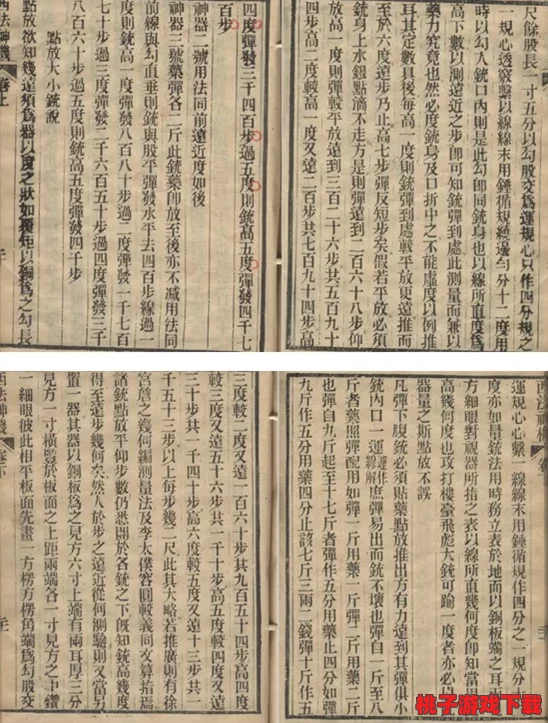 尺餘股長一寸五分以勾股交爲運規心只作四分規之
一規心透竅繫以線線末用錘循規繞邊勻分十二度用
時以勾入銃口內則是此勾同銃身也以線所直度爲
高下數以測遠近之步卽可知銃彈到處此測量而兼以
藥力究竟也然必度銃身及口折中之不能虛度以例推
耳其定數具後每高一度則銃彈到處較平放更遠推而
至於六度遠步乃止高七步彈反短步矣假若平放必須
銃身上水銀點滴不走方是則彈遠到二百六十八步仰
放高一度則彈較平放遠到三百二十六步共五百九十
四步高二度較高一度又遠二百步共七百九十四步高
四度彈發三千四百步過五度則銃高五度彈發四千七
百步
神器二號用法同前遠近度如後
神器三號藥彈各二斤此銃藥卽放至後亦不减用法同
前線與勾直垂則銃與股平彈發水平去四百步線過一
度則銃高一度彈發八百八十步過二度彈發一千七百
七十步過三度彈發二千六百五十步過四度彈發三千
八百步過五度則銃高五度彈發四千步
點放大小銃說
點放欲知幾遠須爲器以度之狀如覆矩以銅爲之勾長
西法神機 卷上 二十
西法神機 卷
運規心心繫一線線末用錘循規作四分之一規分十
度亦如量銃法用時務立表於地而以銅板端之耳兩
方細眼對視器所指之表以線所直幾何度卽知當用
高幾何度也攻打樓臺飛彪大銃可踰一度者亦必以
器量之斯點放不誤
凡彈下腹銃必須貼藥點放推出方有力遠到其彈俱小
銃內口一運 庶彈易出而銃不壞也彈自一斤至八
斤者藥照彈配用如彈一斤用藥一斤彈二斤用藥二斤
也彈自九斤起至十七斤者彈作五分用藥止四分如彈
九斤作五分用藥四分止該七斤三兩二錢彈十斤作五
三度較二度又遠一百六十步共九百五十四步高四度
較三度又遠五十六步共一千一十步高五度較四度又遠
三十步共一千四十步高六度較五度又遠十三步共一
千五十三步以上每步幾二尺此其大略若推廣則有徐
宮詹之幾何編測量法及李太僕容圓較義同文算指焉
諸銃點放平仰步數仍悉開於各銃之下旣知銃高幾度
得至遠步幾何矣然人於步之遠近從何測驗則又當另
置一器其器以銅板爲之見方六寸上端有兩耳厚三分
見方一寸橫豎於板面之上距兩端各一寸見方之中鑽
一細眼彼此相平板面先畫一方楞方楞角端爲勾股交
西法神機 卷
桃子游戏下载